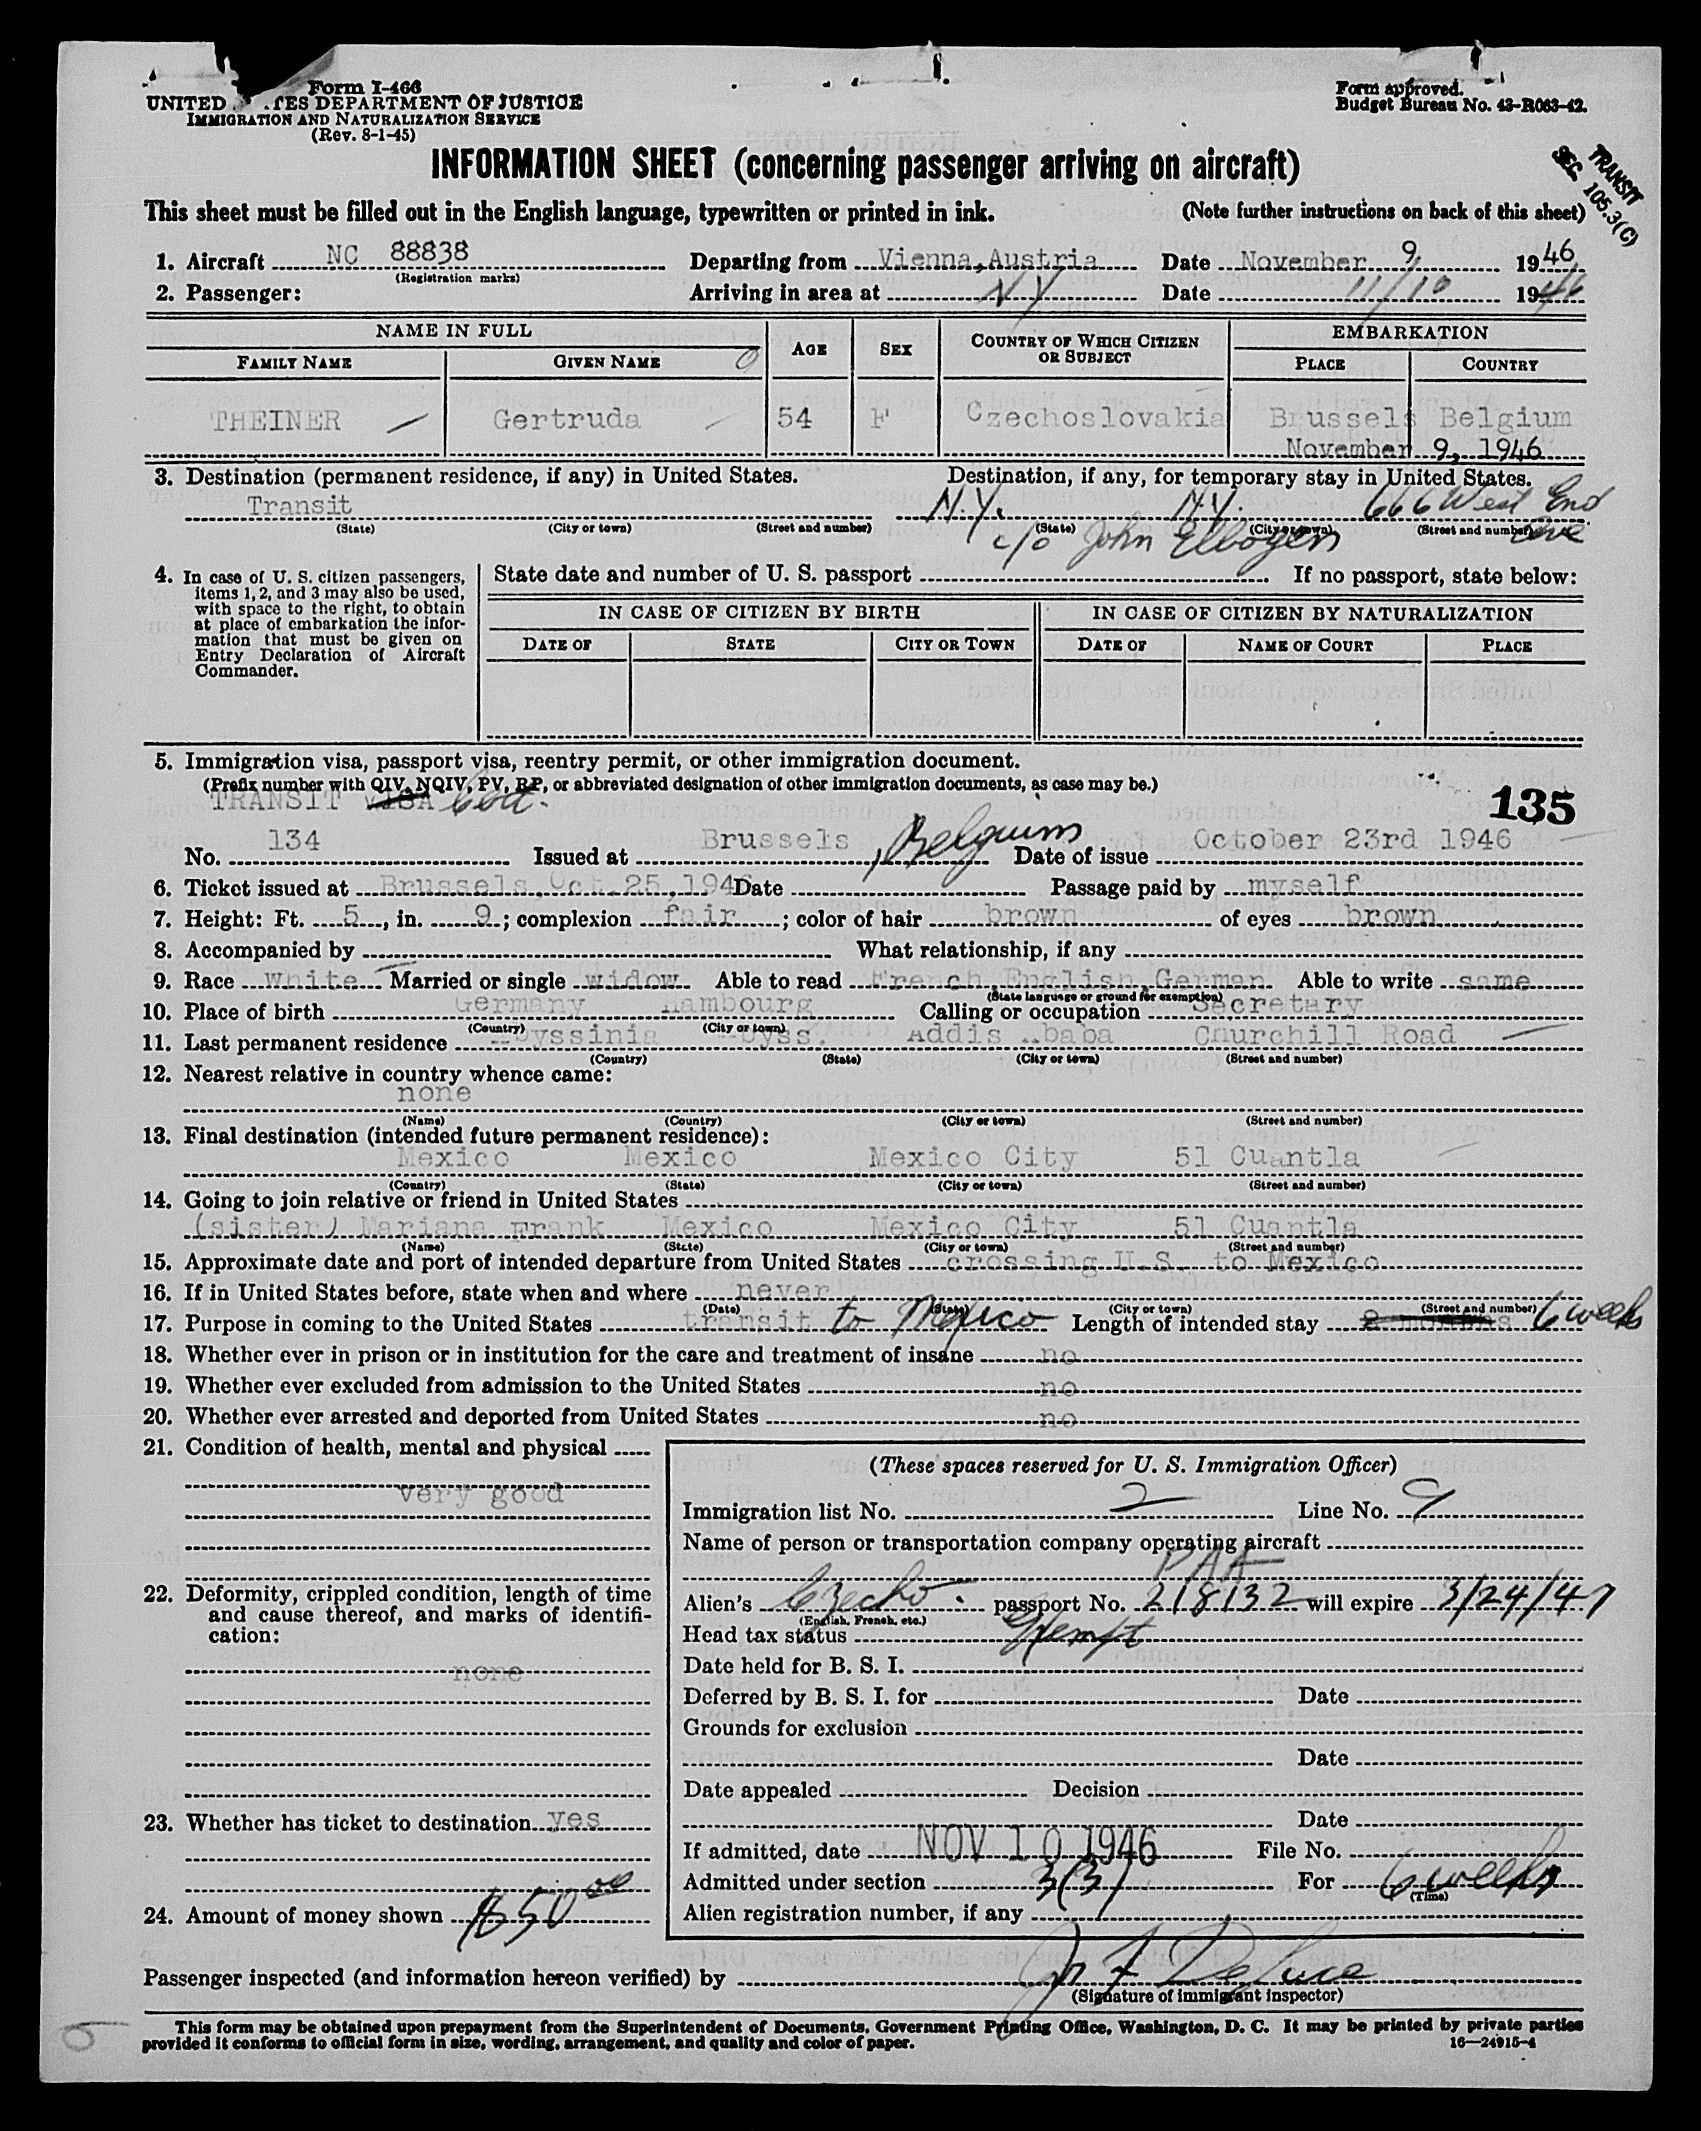 Form I-466
UNITED TES DEPARTMENT OF JUSTICE
IMMIGRATION AND NATURALIZATION SERVICE
(Rev. 8-1-45)
Form approved.
Budget Bureau No. 43-R063-42.
INFORMATION SHEET (concerning passenger arriving on aircraft)
TRANSIT
SEC. 105.3(C)
This sheet must be filled out in the English language, typewritten or printed in ink. (Note further instructions on back of this sheet)
1. Aircraft NC 88838 Departing from Vienna, Austria Date November 9 1946
(Registration marks)
2. Passenger: Arriving in area at NY Date 11/10 1946
NAME IN FULL AGE SEX COUNTRY OF WHICH CITIZEN OR SUBJECT EMBARKATION
FAMILY NAME GIVEN NAME PLACE COUNTRY
THEINER Gertruda 54 F Czechoslovakia Brussels Belgium
November 9, 1946
3. Destination (permanent residence, if any) in United States. Destination, if any, for temporary stay in United States.
Transit N.Y. N.Y. 666 West End Ave
(State) (City or town) (Street and number) (State) (City or town) (Street and number)
c/o John Elbogen
4. In case of U. S. citizen passengers, items 1, 2, and 3 may also be used, with space to the right, to obtain at place of embarkation the information that must be given on Entry Declaration of Aircraft Commander.
State date and number of U. S. passport If no passport, state below:
IN CASE OF CITIZEN BY BIRTH IN CASE OF CITIZEN BY NATURALIZATION
DATE OF STATE CITY OR TOWN DATE OF NAME OF COURT PLACE
5. Immigration visa, passport visa, reentry permit, or other immigration document.
(Prefix number with QIV, NQIV, PV, RP, or abbreviated designation of other immigration documents, as case may be.)
TRANSIT VISA
135
No. 134 Issued at Brussels, Belgium Date of issue October 23rd 1946
6. Ticket issued at Brussels, Oct. 25, 1946 Date Passage paid by myself
7. Height: Ft. 5, in. 9; complexion fair; color of hair brown of eyes brown
8. Accompanied by What relationship, if any
9. Race White Married or single widow Able to read French, English, German Able to write same
(State language or ground for exemption)
10. Place of birth Germany Hambourg Calling or occupation Secretary
(Country) (City or town)
11. Last permanent residence Abyssinia Abyss. Addis Ababa Churchill Road
(Country) (State) (City or town) (Street and number)
12. Nearest relative in country whence came:
none
(Name) (Country) (City or town) (Street and number)
13. Final destination (intended future permanent residence):
Mexico Mexico Mexico City 51 Cuantla
(Country) (State) (City or town) (Street and number)
14. Going to join relative or friend in United States
(sister) Mariana Frank Mexico Mexico City 51 Cuantla
(Name) (State) (City or town) (Street and number)
15. Approximate date and port of intended departure from United States crossing U.S. to Mexico
16. If in United States before, state when and where never
(Date) (State) (City or town) (Street and number)
17. Purpose in coming to the United States transit to Mexico Length of intended stay 2 months 6 weeks
18. Whether ever in prison or in institution for the care and treatment of insane no
19. Whether ever excluded from admission to the United States no
20. Whether ever arrested and deported from United States no
21. Condition of health, mental and physical
very good
22. Deformity, crippled condition, length of time and cause thereof, and marks of identification:
none
23. Whether has ticket to destination yes
24. Amount of money shown $50.00
(These spaces reserved for U. S. Immigration Officer)
Immigration list No. 2 Line No. 9
Name of person or transportation company operating aircraft
PAA
Alien's Czecho. passport No. 218132 will expire 3/24/47
(English, French, etc.)
Head tax status Exempt
Date held for B. S. I.
Deferred by B. S. I. for Date
Grounds for exclusion
Date
Date appealed Decision
Date
If admitted, date NOV 10 1946 File No.
Admitted under section 3(3) For 6 weeks
(Time)
Alien registration number, if any
Passenger inspected (and information hereon verified) by
(Signature of immigrant inspector)
This form may be obtained upon prepayment from the Superintendent of Documents, Government Printing Office, Washington, D. C. It may be printed by private parties
provided it conforms to official form in size, wording, arrangement, and quality and color of paper. 16—24915-4